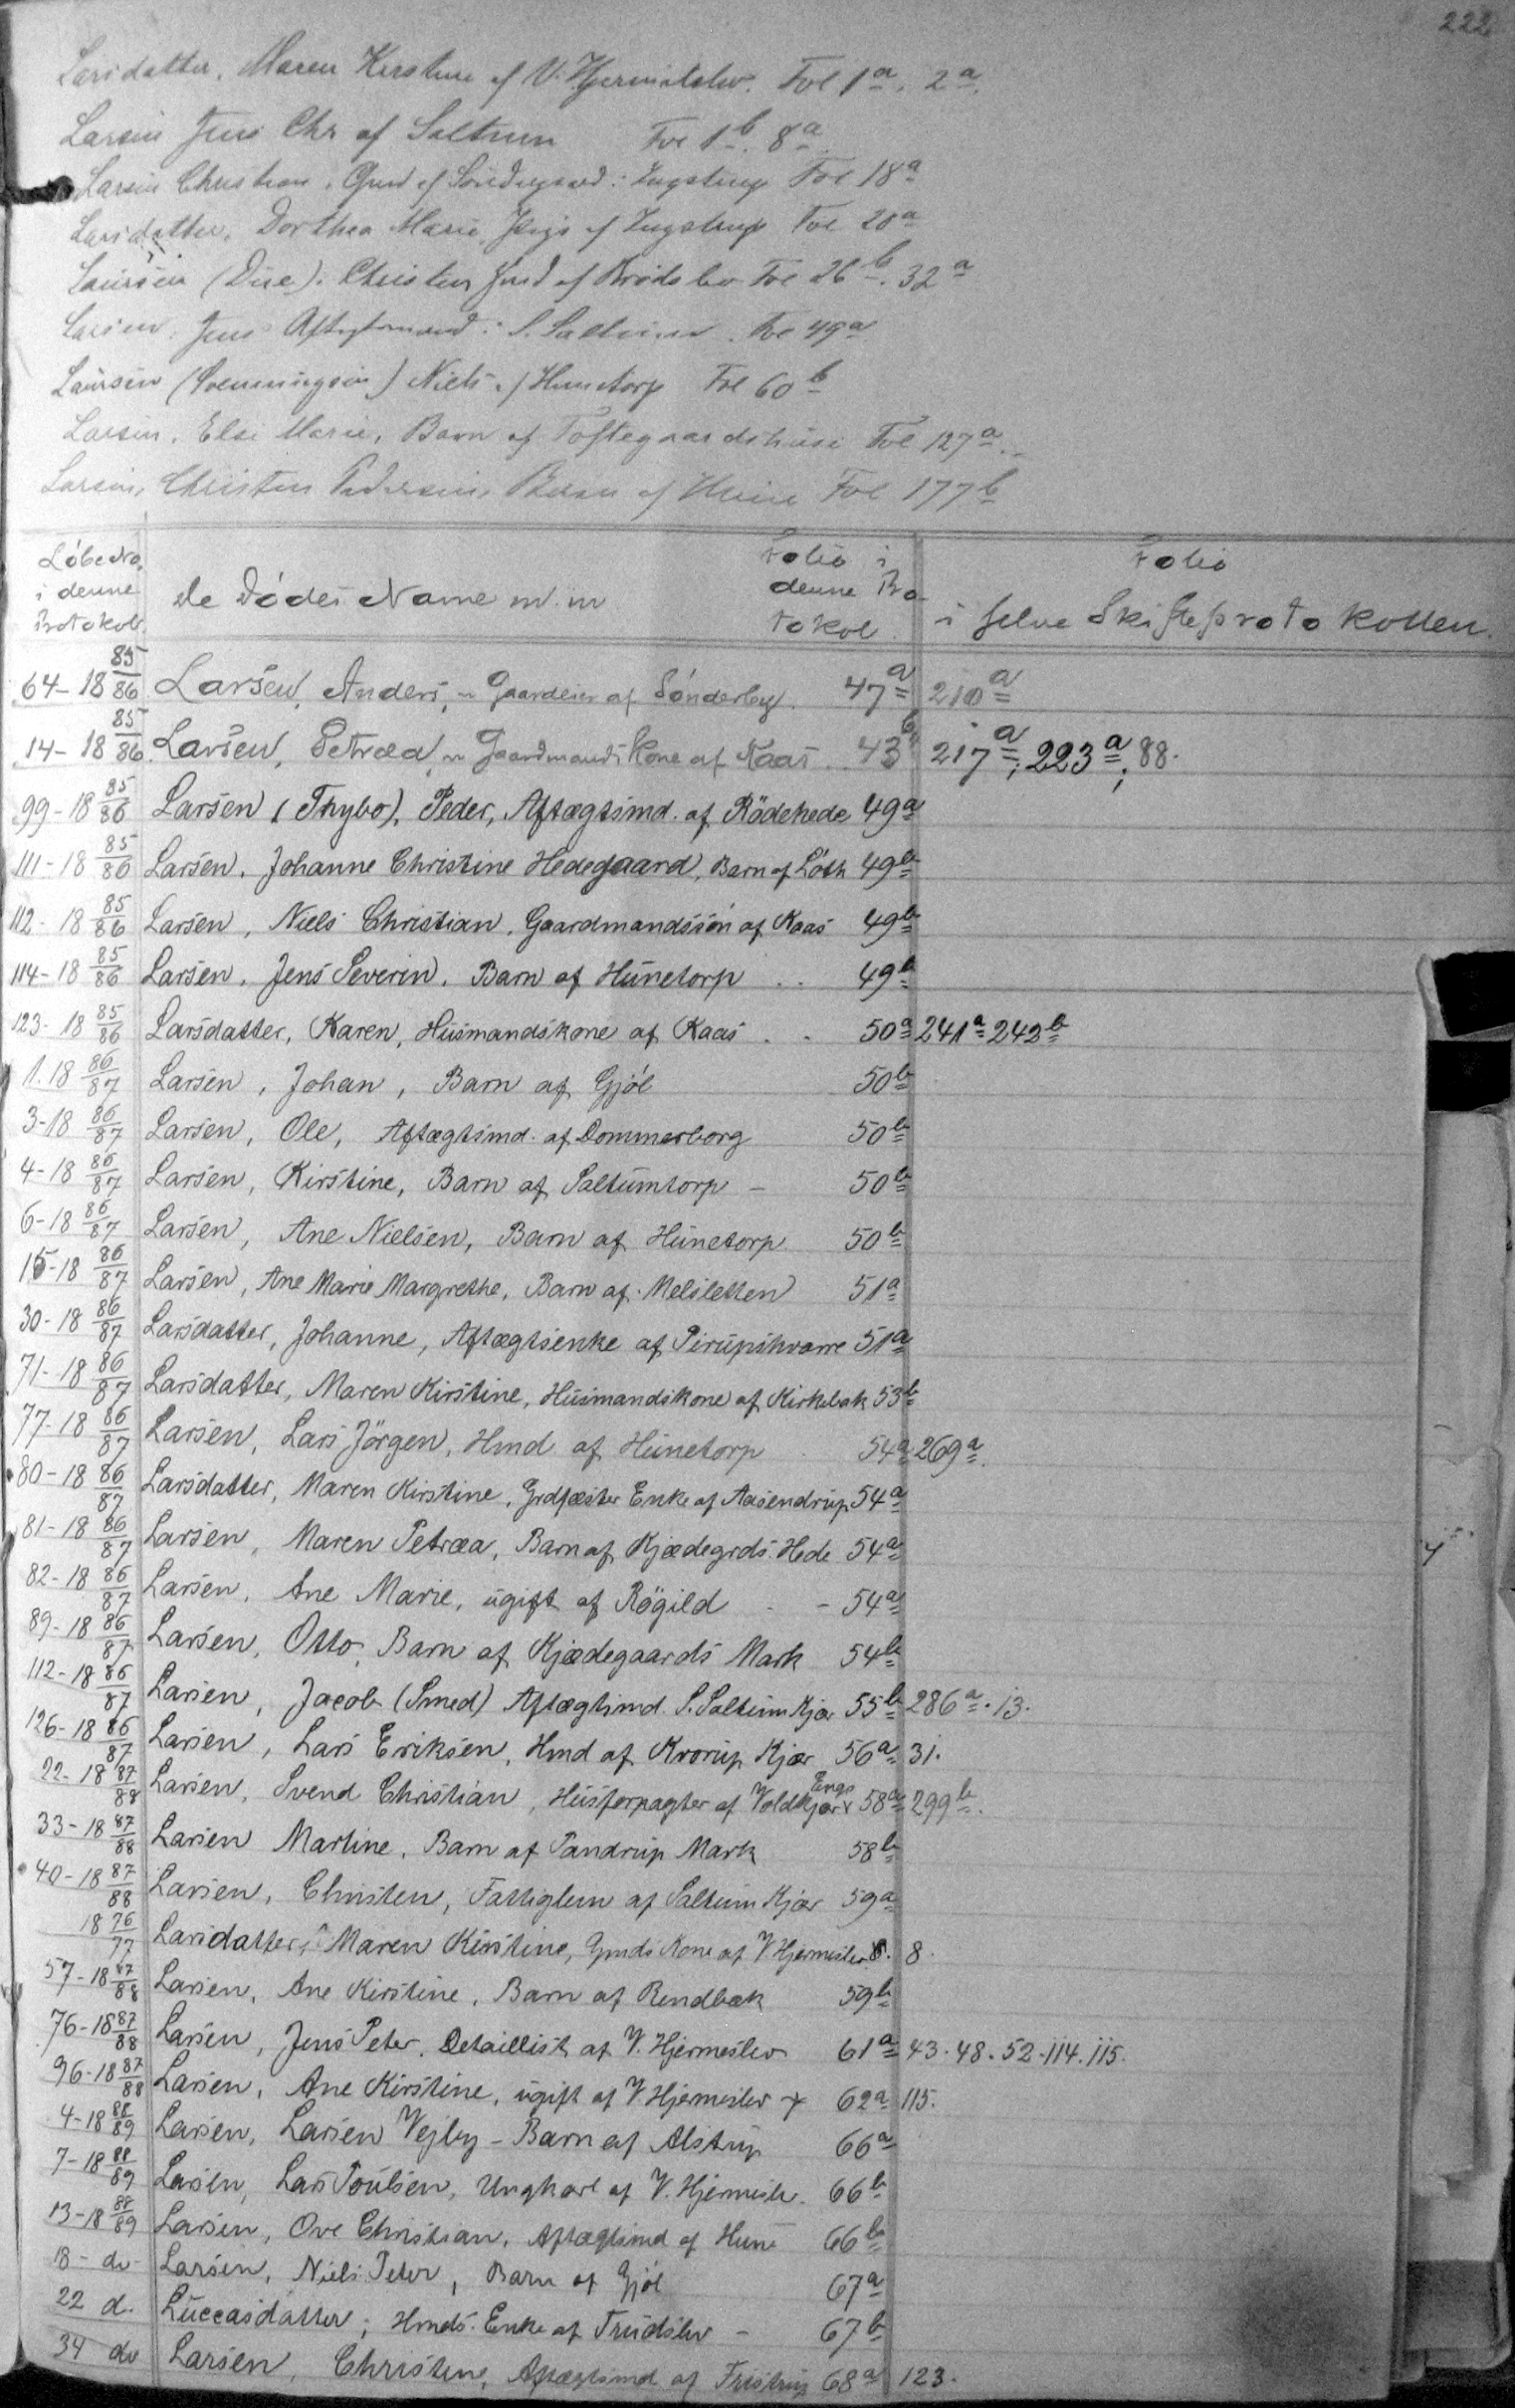 222
Larsdatter, Maren Kirstine af V. Hjermitslev. Fol 1a, 2a.
Larsen Jens Chr af Saltum Fol 1b. 8a
Larsen Christian, Gmd af Søndergaard i Ingstrup Fol 18a
Larsdatter, Dorthea Marie, Pige af Ingstrup Fol 20a
Laursen (Due), Christen Jmd af Brødslev Fol 26b. 32a
Larsen, Jens Aftægtsmand i S. Saltum. Fol 49a
Laursen (Svenningsen) Niels af Hunetorp Fol 60b
Larsen, Else Marie, Barn af Toftegaardshuse Fol 127a.
Larsen, Christen Pedersen, Barn af Hune Fol 177b
Løbe No. i denne Protokol. De Dødes Navne m. m. Folio i denne Protokol. Folio i selve Skifteprotokollen.
64-18 85/86 Larsen, Anders, Gaardeier af Sønderby. 47a 210a
14-18 85/86 Larsen, Petræa, Gaardmands Kone af Kaas. 43b 217a; 223a; 88.
99-18 85/86 Larsen (Thybo), Peder, Aftægtsmd. af Rödehede 49a
111-18 85/86 Larsen, Johanne Christine Hedegaard, Barn af Löth 49b
112-18 85/86 Larsen, Niels Christian, Gaardmandssön af Kaas 49b
114-18 85/86 Larsen, Jens Severin, Barn af Hunetorp . . 49b
123-18 85/86 Larsdatter, Karen, Husmandskone af Kaas . . 50a 241a 242b
1.18 86/87 Larsen, Johan, Barn af Gjöl 50b
3-18 86/87 Larsen, Ole, Aftægtsmd. af Dommerborg 50b
4-18 86/87 Larsen, Kirstine, Barn af Saltumtorp - 50b
6-18 86/87 Larsen, Ane Nielsen, Barn af Hunetorp 50b
15-18 86/87 Larsen, Ane Marie Margrethe, Barn af Melsletten 51a
30-18 86/87 Larsdatter, Johanne, Aftægtsenke af Pirupshvarre 51a
71-18 86/87 Larsdatter, Maren Kirstine, Husmandskone af Kirkebak 53b
77-18 86/87 Larsen, Lars Jörgen, Hmd af Hunetorp 54a 269a.
80-18 86/87 Larsdatter, Maren Kirstine, Grdfæster Enke af Aasendrup 54a
81-18 86/87 Larsen, Maren Petræa, Barn af Kjædegrds. Hede 54a
82-18 86/87 Larsen, Ane Marie, ugift af Rögild - - 54a
89-18 86/87 Larsen, Otto, Barn af Kjædegaards Mark 54b
112-18 86/87 Larsen, Jacob (Smed) Aftægtsmd. S. Saltum Kjær 55b 286a. 13.
126-18 86/87 Larsen, Lars Eriksen, Hmd af Krorup Kjær 56a 31.
22-18 87/88 Larsen, Svend Christian, Husforpagter af Voldkjær Engs 58a 299b.
33-18 87/88 Larsen Martine, Barn af Pandrup Mark 58b
40-18 87/88 Larsen, Christen, Fattiglem af Saltum Kjær 59a
18 76/77 Larsdatter, Maren Kirstine, Gmds Kone af V. Hjermeslev 8. 8.
57-18 87/88 Larsen, Ane Kirstine, Barn af Rendbæk 59b
76-18 87/88 Larsen, Jens Peter, Detaillist af V. Hjermeslev 61a 43. 48. 52. 114. 115.
96-18 87/88 Larsen, Ane Kirstine, ugift af V. Hjermeslev + 62a 115.
4-18 88/89 Larsen, Larsen Vejby - Barn af Alstrup 66a
7-18 88/89 Larsen, Lars Poulsen, Ungkarl af V. Hjermeslev. 66b
13-18 88/89 Larsen, Ove Christian, Aftægtsmd af Hune 66b
18 - do - Larsen, Niels Peter, Barn af Gjöl 67a
22 d. Luccasdatter, Hmds. Enke af Trudslev - 67b
34 do Larsen, Christen, Aftægtsmd af Fristrup 68a 123.